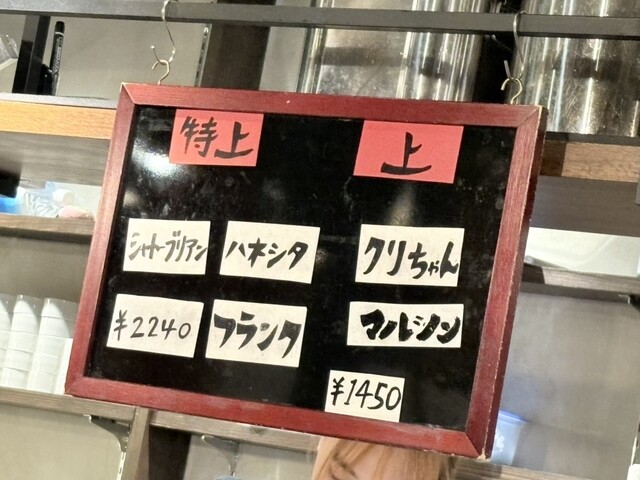 特上
上
シャトーブリアン
ハネシタ
クリちゃん
¥2240
フランク
マルシン
¥1450